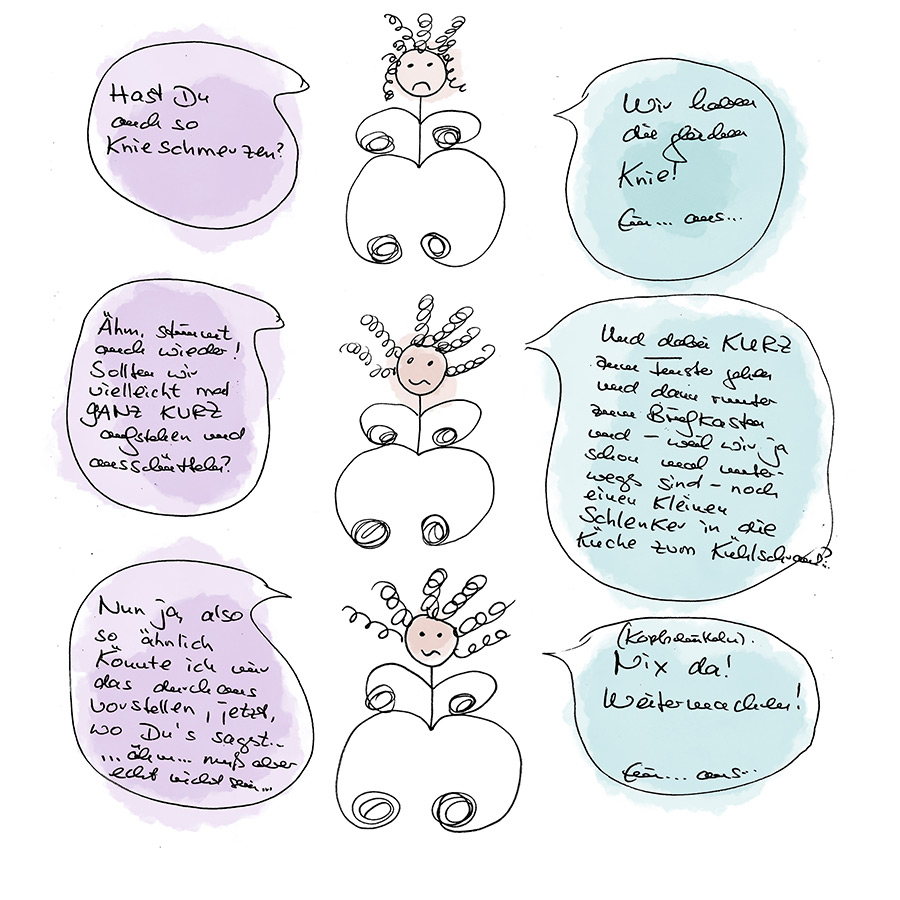 Hast Du
auch so
Knieschmerzen?
Wir haben
die gleichen
Knie!
Ein... aus...
Ähm, stimmt
auch wieder!
Sollten wir
vielleicht mal
GANZ KURZ
aufstehen und
ausschütteln?
Und dabei KURZ
zum Fenster gehen
und dann runter
zum Briefkasten
und - weil wir ja
schon mal unter-
wegs sind - noch
einen kleinen
Schlenker in die
Küche zum Kühlschrank?..
Nun ja, also
so ähnlich
könnte ich mir
das durchaus
vorstellen, jetzt,
wo Du's sagst..
...ähm... muß aber
echt nicht sein...
(Kopfschütteln).
Nix da!
Weitermachen!
Ein... aus...